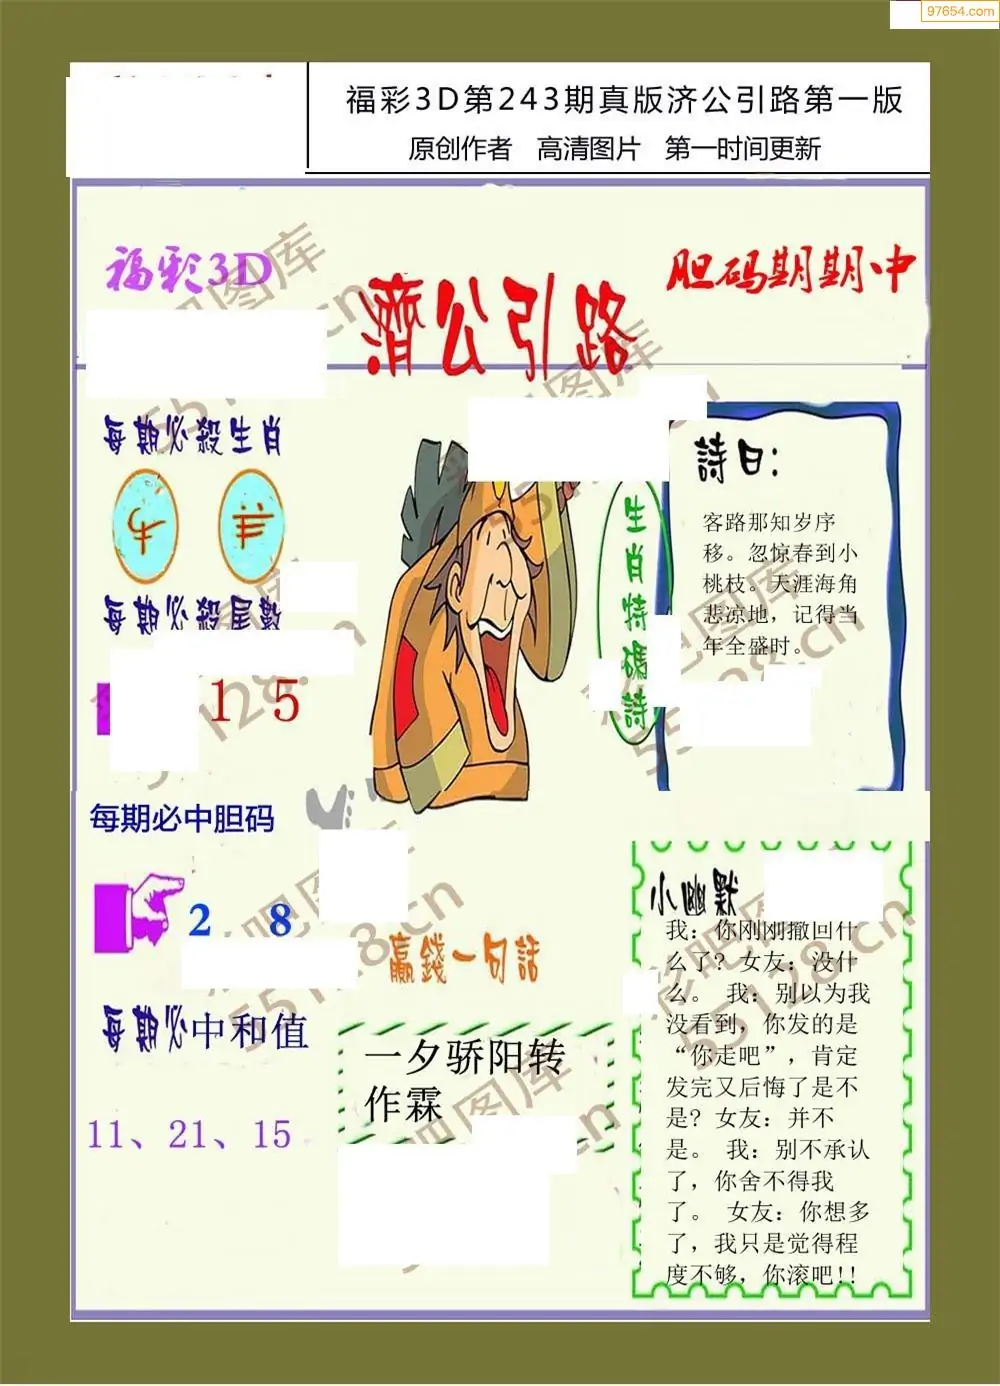 97654.com
福彩3D第243期真版济公引路第一版
原创作者 高清图片 第一时间更新
福彩3D
胆码期期中
濟公引路
每期必殺生肖
牛
羊
每期必殺尾數
1 5
每期必中胆码
2 8
每期必中和值
11、21、15
生肖特碼詩
詩曰:
客路那知岁序
移。忽惊春到小
桃枝。天涯海角
悲凉地,记得当
年全盛时。
贏錢一句話
一夕骄阳转
作霖
小幽默
我:你刚刚撤回什
么了?女友:没什
么。 我:别以为我
没看到,你发的是
“你走吧”,肯定
发完又后悔了是不
是?女友:并不
是。 我:别不承认
了,你舍不得我
了。 女友:你想多
了,我只是觉得程
度不够,你滚吧!!